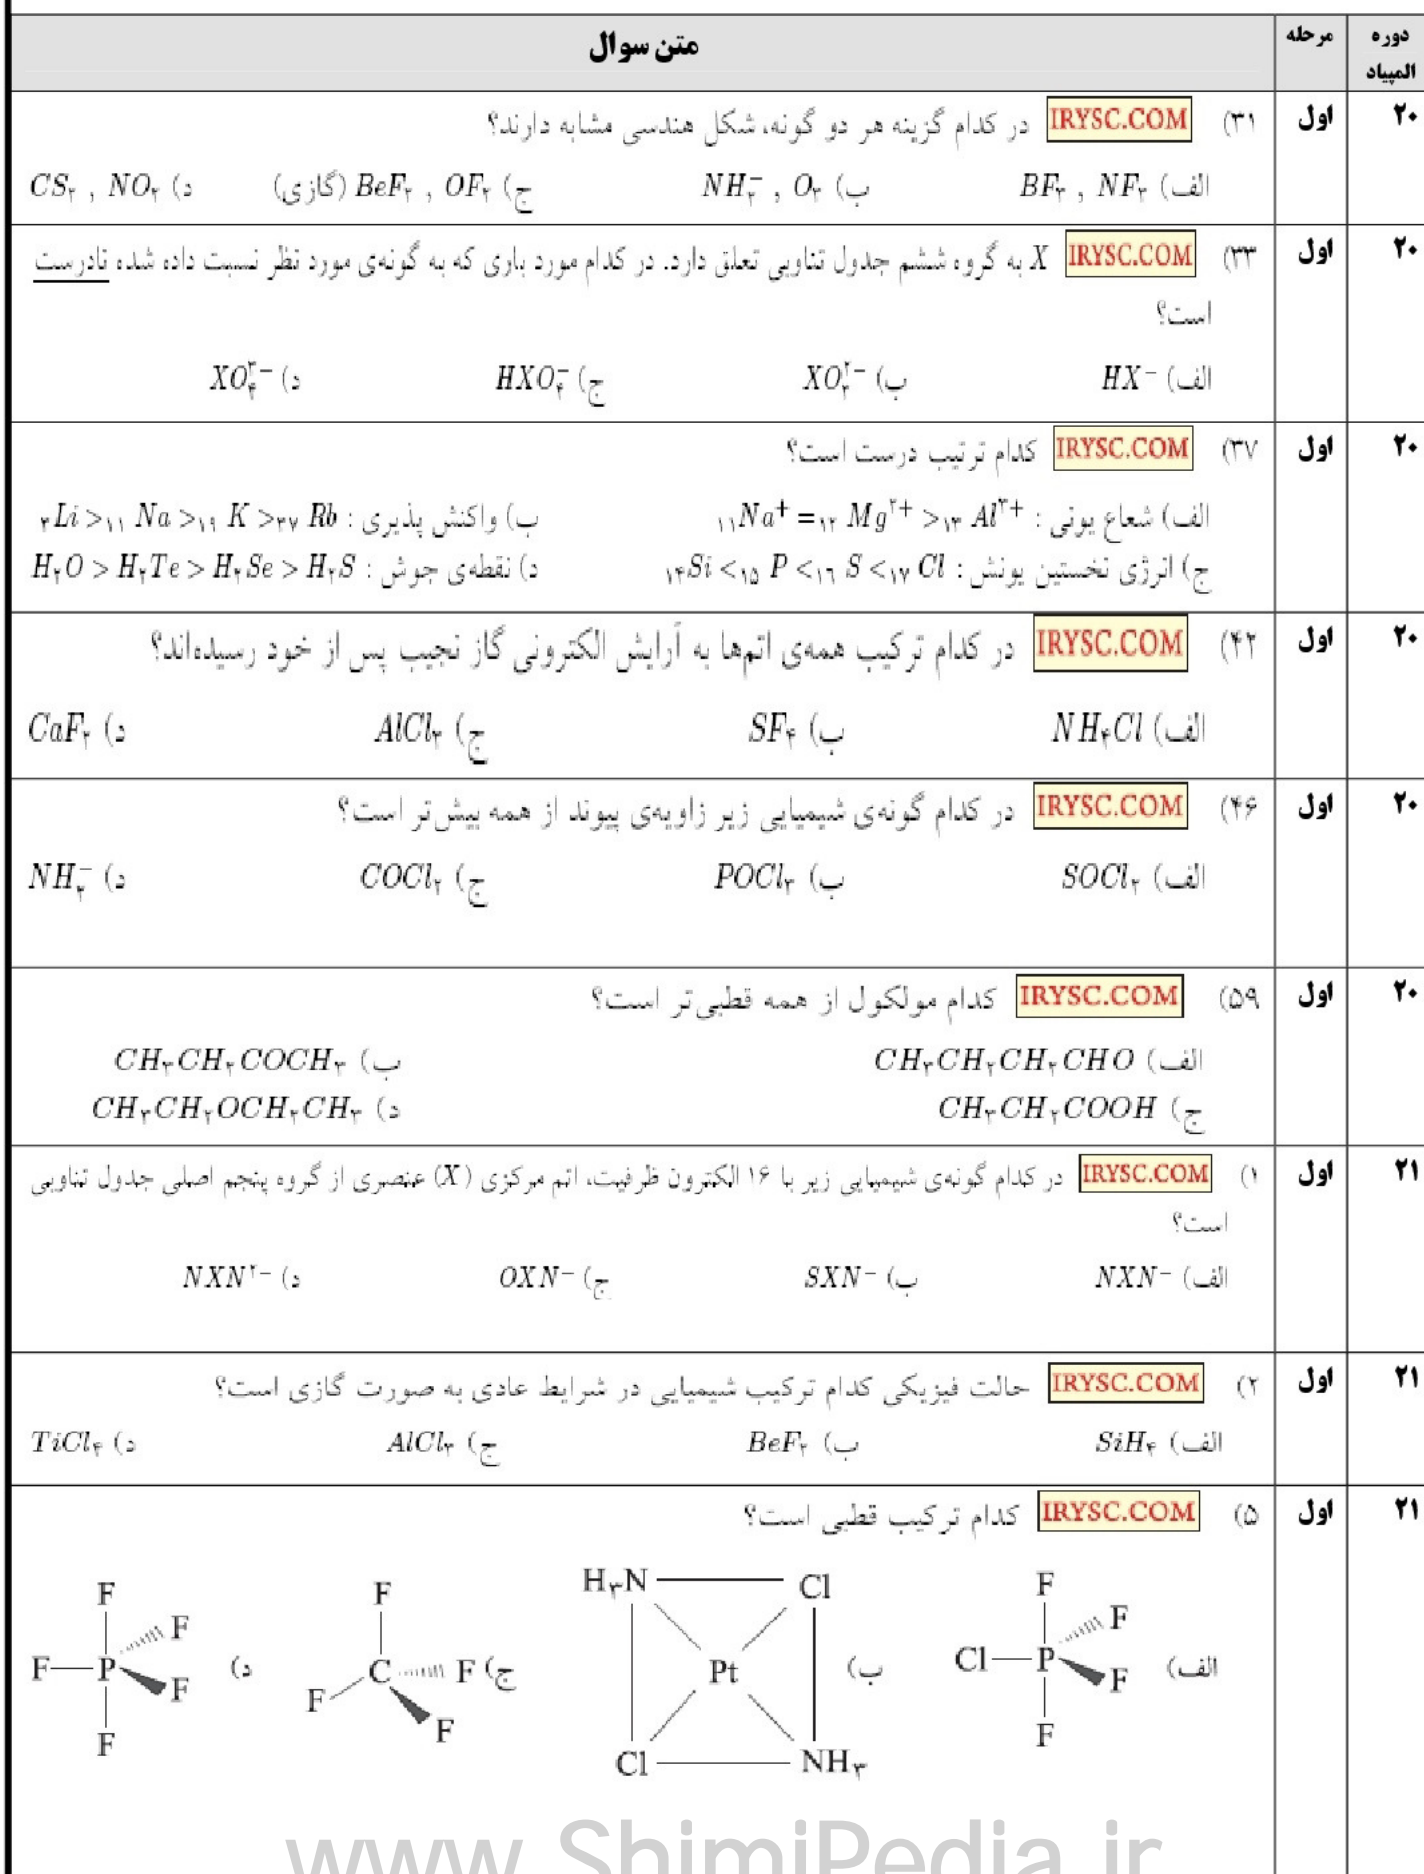 دوره المپیاد	مرحله	متن سوال
۲۰	اول	۳۱) IRYSC.COM در کدام گزینه هر دو گونه، شکل هندسی مشابه دارند؟
الف) BF۳ , NF۳	ب) NH۲− , O۳	ج) BeF۲ , OF۲ (گازی)	د) CS۲ , NO۲
۲۰	اول	۳۳) IRYSC.COM X به گروه ششم جدول تناوبی تعلق دارد. در کدام مورد باری که به گونه‌ی مورد نظر نسبت داده شده نادرست
است؟
الف) HX−	ب) XO۳۲−	ج) HXO۴−	د) XO۴۳−
۲۰	اول	۳۷) IRYSC.COM کدام ترتیب درست است؟
الف) شعاع یونی : ۱۱Na+ = ۱۲Mg۲+ > ۱۳Al۳+	ب) واکنش پذیری : ۳Li > ۱۱Na > ۱۹K > ۳۷Rb
ج) انرژی نخستین یونش : ۱۴Si < ۱۵P < ۱۶S < ۱۷Cl	د) نقطه‌ی جوش : H۲O > H۲Te > H۲Se > H۲S
۲۰	اول	۴۲) IRYSC.COM در کدام ترکیب همه‌ی اتم‌ها به آرایش الکترونی گاز نجیب پس از خود رسیده‌اند؟
الف) NH۴Cl	ب) SF۴	ج) AlCl۳	د) CaF۲
۲۰	اول	۴۶) IRYSC.COM در کدام گونه‌ی شیمیایی زیر زاویه‌ی پیوند از همه بیش‌تر است؟
الف) SOCl۲	ب) POCl۳	ج) COCl۲	د) NH۲−
۲۰	اول	۵۹) IRYSC.COM کدام مولکول از همه قطبی‌تر است؟
الف) CH۳CH۲CH۲CHO	ب) CH۳CH۲COCH۳
ج) CH۳CH۲COOH	د) CH۳CH۲OCH۲CH۳
۲۱	اول	۱) IRYSC.COM در کدام گونه‌ی شیمیایی زیر با ۱۶ الکترون ظرفیت، اتم مرکزی (X) عنصری از گروه پنجم اصلی جدول تناوبی
است؟
الف) NXN−	ب) SXN−	ج) OXN−	د) NXN۲−
۲۱	اول	۲) IRYSC.COM حالت فیزیکی کدام ترکیب شیمیایی در شرایط عادی به صورت گازی است؟
الف) SiH۴	ب) BeF۲	ج) AlCl۳	د) TiCl۴
۲۱	اول	۵) IRYSC.COM کدام ترکیب قطبی است؟
الف) F F Cl P F F
ب) H۳N Cl Pt Cl NH۳
ج) F C F F F
د) F F F P F F
www.ShimiPedia.ir